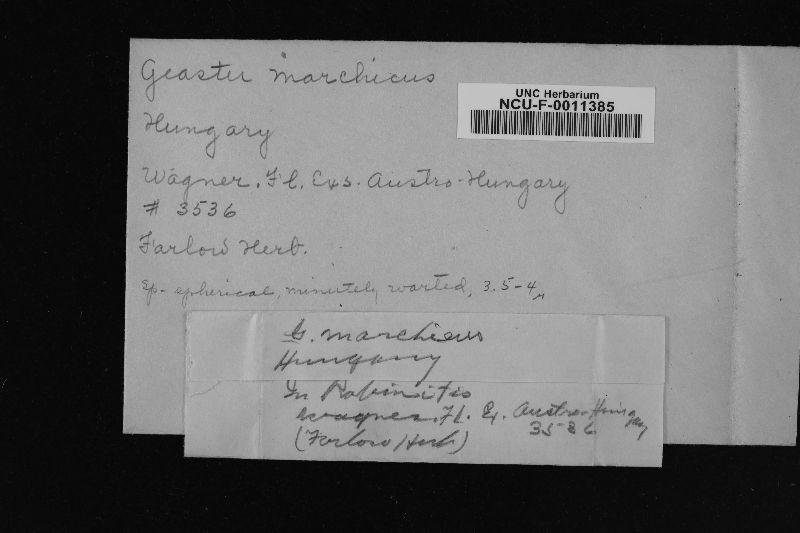 Geaster marchicus
UNC Herbarium
NCU-F-0011385
Hungary
Wagner. Fl. Exs. Austro-Hungary
# 3536
Farlow Herb.
Sp- spherical, minutely warted, 3.5-4µ
G. marchicus
Hungary
In Robinitis
Wagner. Fl. Ex. Austro-Hungary
3536
(Farlow Herb)